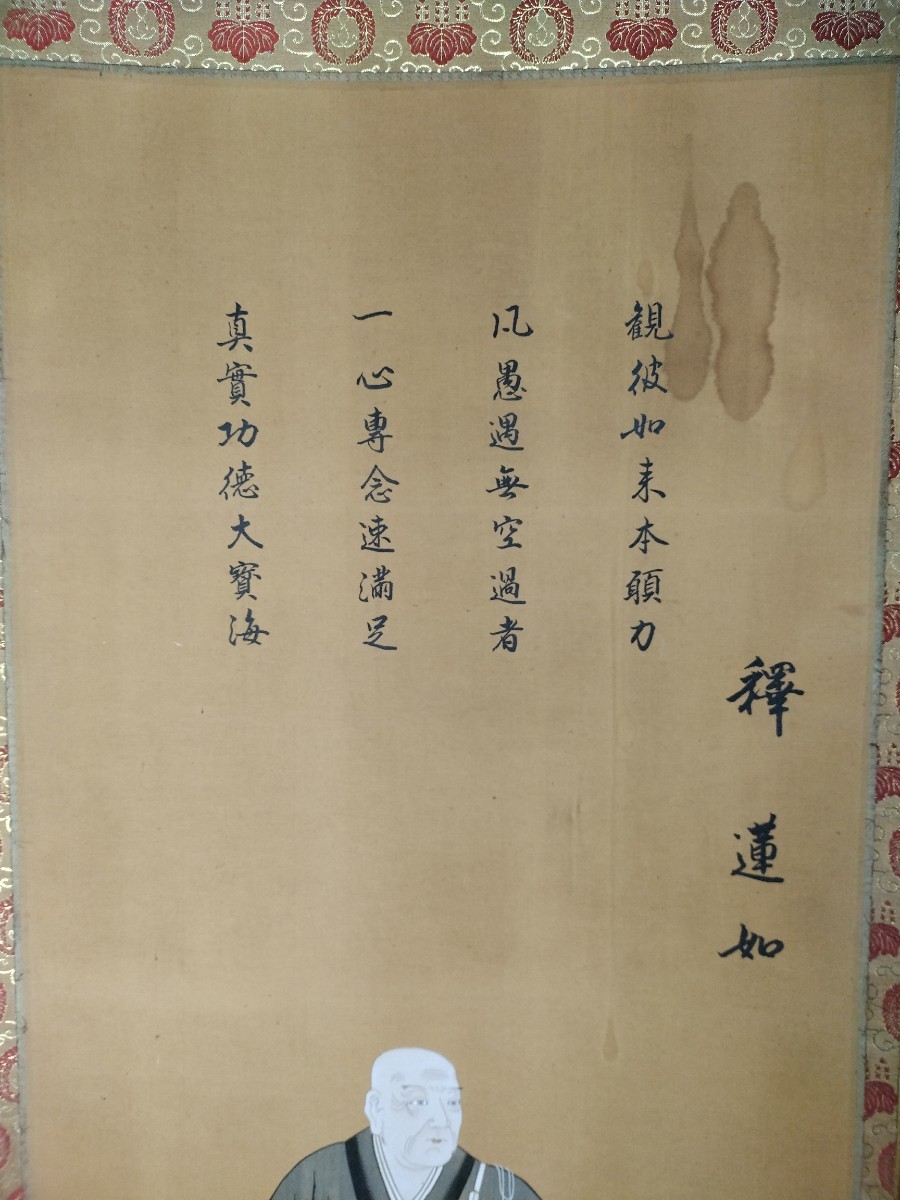 釋蓮如
觀彼如来本願力
凡愚遇無空過者
一心專念速滿足
真實功德大寳海